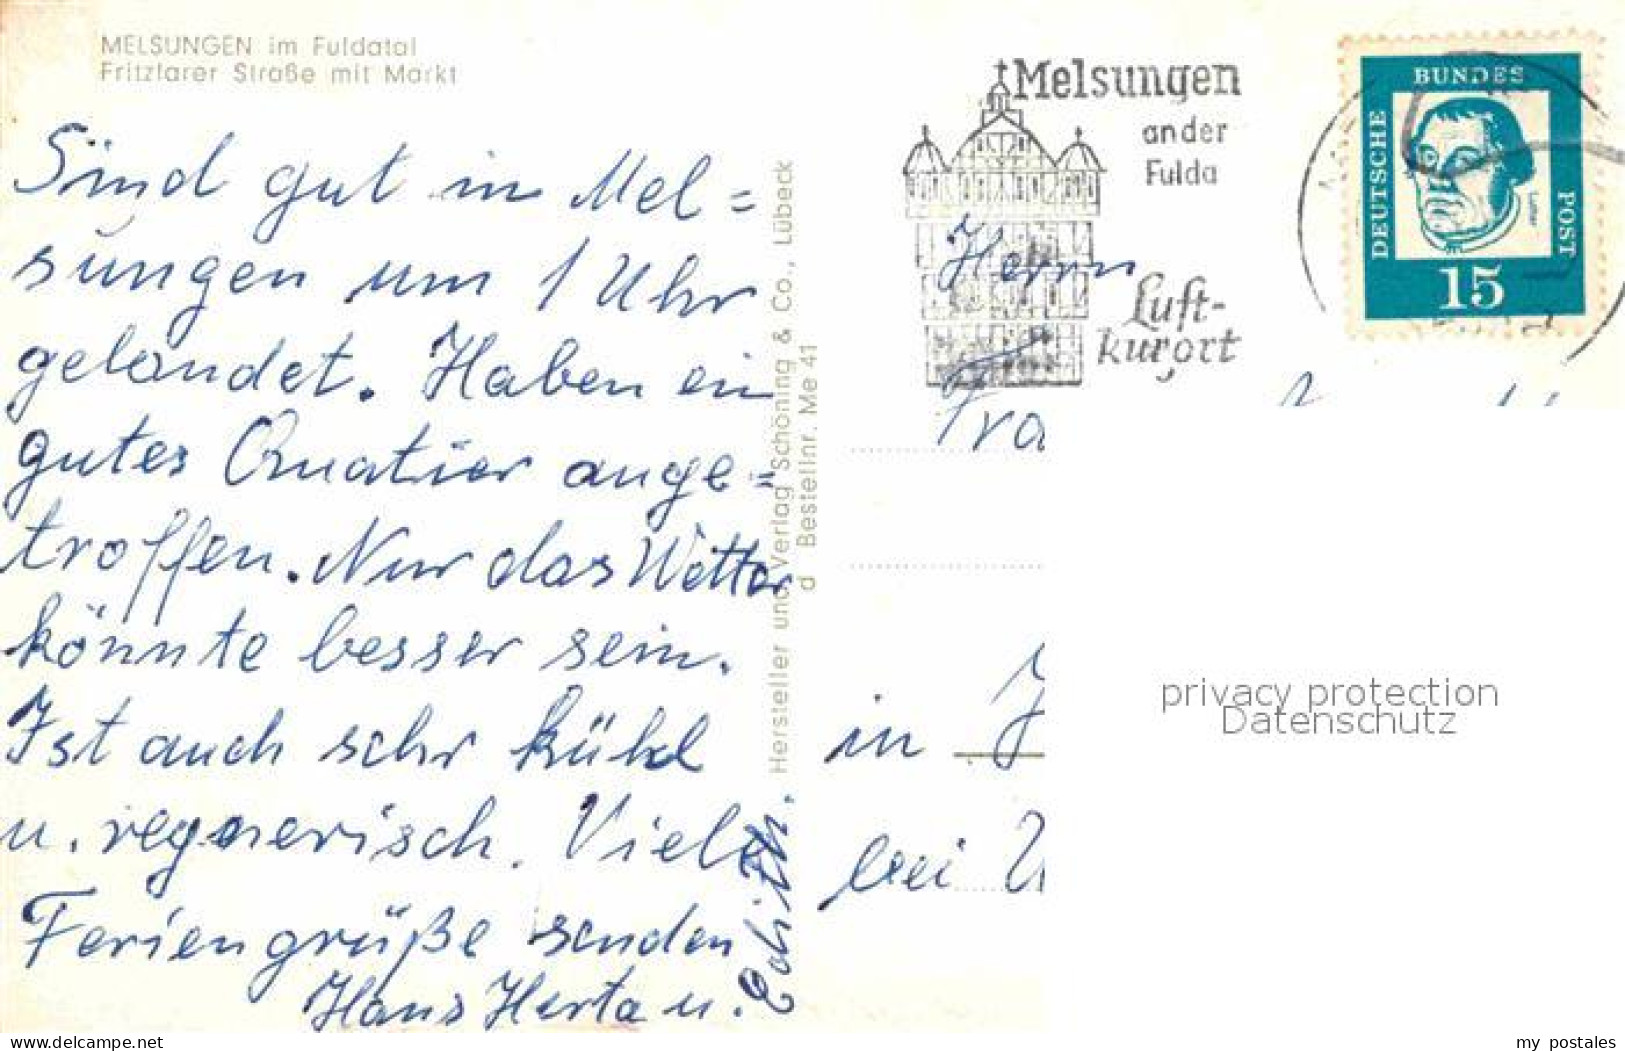 MELSUNGEN im Fuldatal
Fritzlarer Straße mit Markt
Sind gut in Mel=
sungen um 1 Uhr
gelandet. Haben ein
gutes Quatier ange=
troffen. Nur das Wetter
könnte besser sein.
Ist auch sehr kühl
u. regnerisch. Viele
Feriengrüße senden
Hans Herta u.
Edith.
Hersteller und Verlag Schöning & Co., Lübeck
d Bestellnr. Me 41
Melsungen
an der
Fulda
Luft-
kurort
DEUTSCHE
BUNDES
POST
Luther
15
Herrn
in
bei
privacy protection
Datenschutz
www.ansichtskartenwelle.com
my_postales